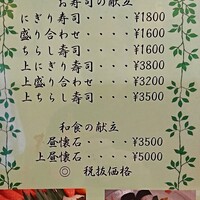 お寿司の献立
にぎり寿司・・・・¥1800
盛り合わせ・・・・¥1600
ちらし寿司・・・・¥1600
上にぎり寿司・・・¥3800
上盛り合わせ・・・¥3200
上ちらし寿司・・・¥3500
和食の献立
昼懐石・・・・¥3500
上昼懐石・・・・¥5000
◎ 税抜価格